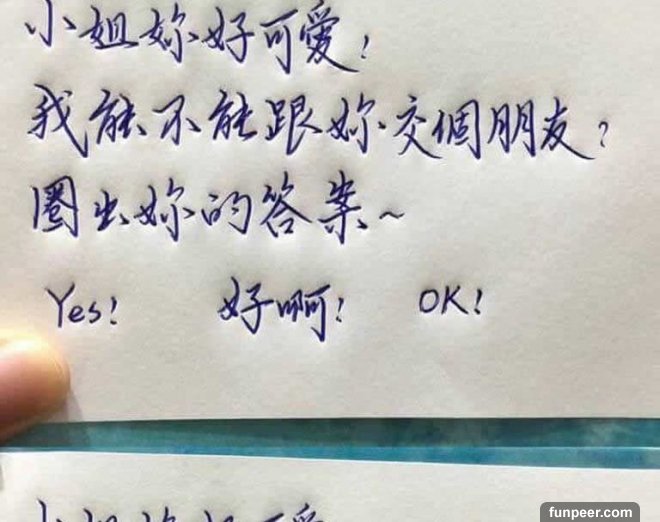 小姐妳好可愛!
我能不能跟妳交個朋友?
圈出妳的答案~
Yes! 好啊! OK!
小姐妳好可愛
funpeer.com